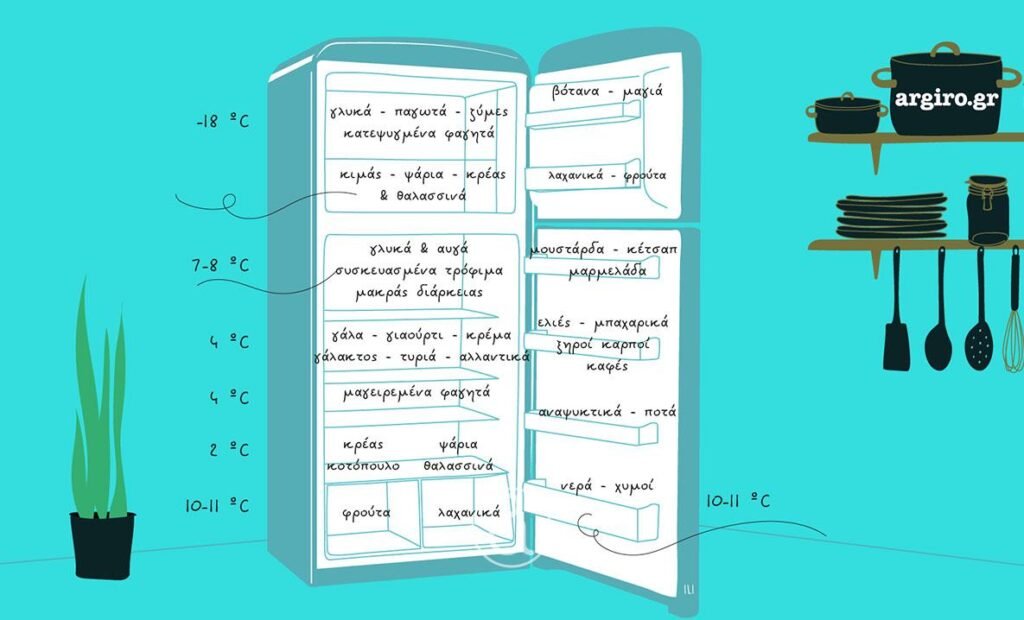 -18 ºC
γλυκά - παγωτά - ζύμες
κατεψυγμένα φαγητά
κιμάς - ψάρια - κρέας
& θαλασσινά
βότανα - μαγιά
λαχανικά - φρούτα
argiro.gr
7-8 ºC
γλυκά & αυγά
συσκευασμένα τρόφιμα
μακράς διάρκειας
4 ºC
γάλα - γιαούρτι - κρέμα
γάλακτος - τυριά - αλλαντικά
4 ºC
μαγειρεμένα φαγητά
2 ºC
κρέας
κοτόπουλο
ψάρια
θαλασσινά
10-11 ºC
φρούτα
λαχανικά
μουστάρδα - κέτσαπ
μαρμελάδα
ελιές - μπαχαρικά
ξηροί καρποί
καφές
αναψυκτικά - ποτά
νερά - χυμοί
10-11 ºC